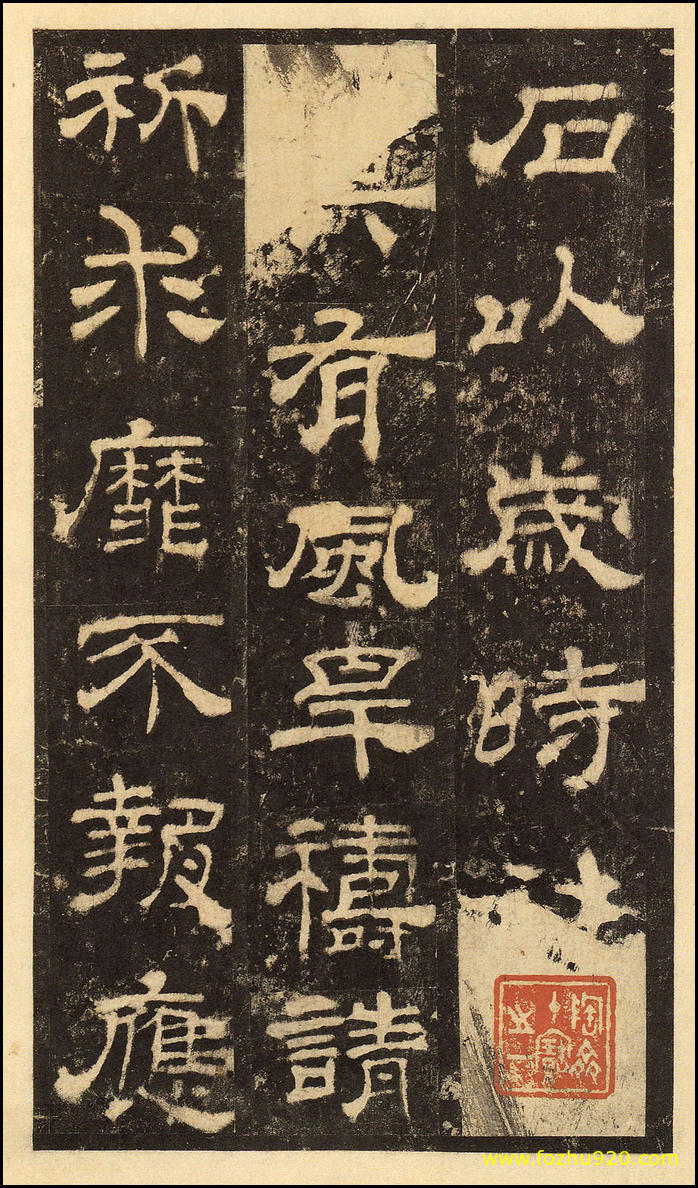 石以歲時法
有風旱禱請
祈求靡不報應
www.fozhu920.com